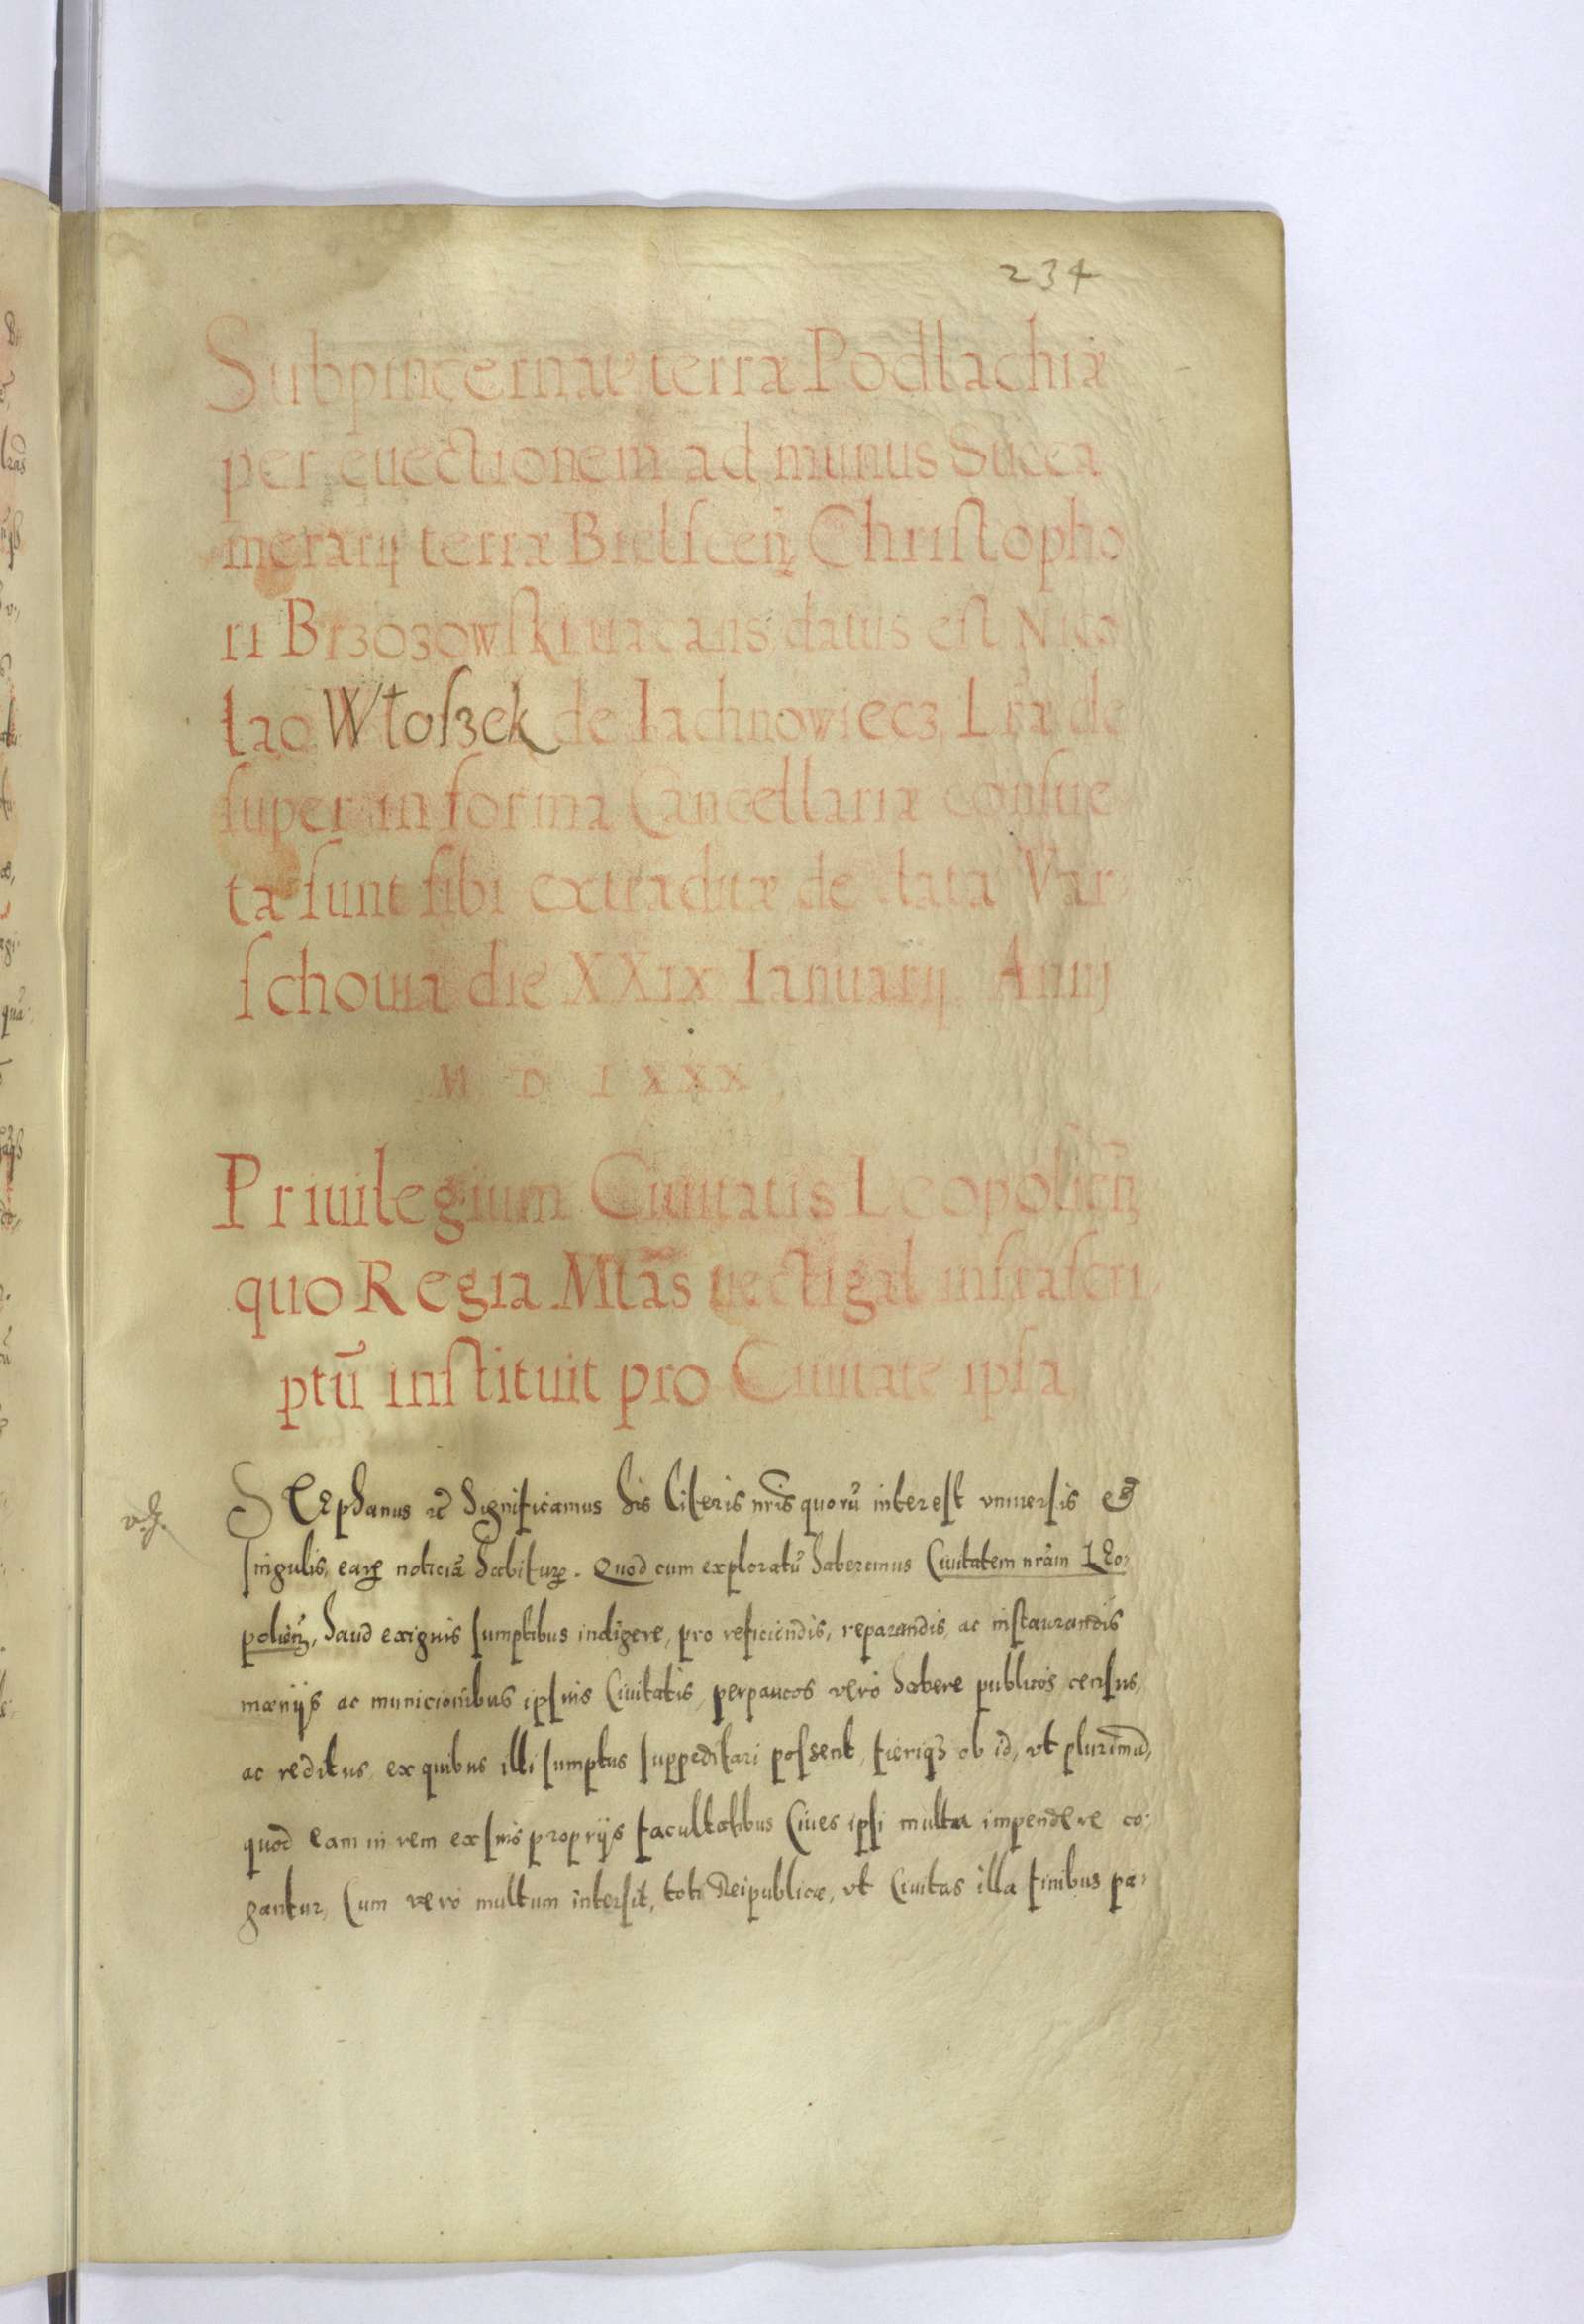 234
Subpincernatꝰ terræ Podlachiæ
per euectionem ad munus Succa
merarij terræ Bielscen̄ Christopho
ri Brzozowski uacans datus est Nico
lao Włoszek de Iachnowiecz, Lr̃æ de
super in forma Cancellariæ consue
ta sunt sibi extraditæ de data Var
schouia die XXIX Ianuarij Anni
M D LXXX
Priuilegium Ciuitatis Leopolien̄
quo Regia Mtãs uectigal infrascri
ptũ instituit pro Ciuitate ipsa
STEphanus etc̃ Significamus his literis nr̃is quorũ interest vniuersis et
singulis, earꝝ noticiã habiturꝭ. Quod cum exploratũ haberemus Ciuitatem nr̃am LEo-
polien̄, haud exiguis sumptibus indigere, pro reficiendis, reparandis, ac instaurandis
mœnijs ac municionibus ipsius Ciuitatis, perpaucos vero habere publicos census,
ac reditus, ex quibus illi sumptus suppeditari possent, fieriqꝫ ob id, vt plurimũ,
quod eam in rem ex suis proprijs facultatibus Ciues ipsi multa impendere co-
gantur, Cum vero multum intersit, toti Reipublicæ, vt Ciuitas illa finibus pa-